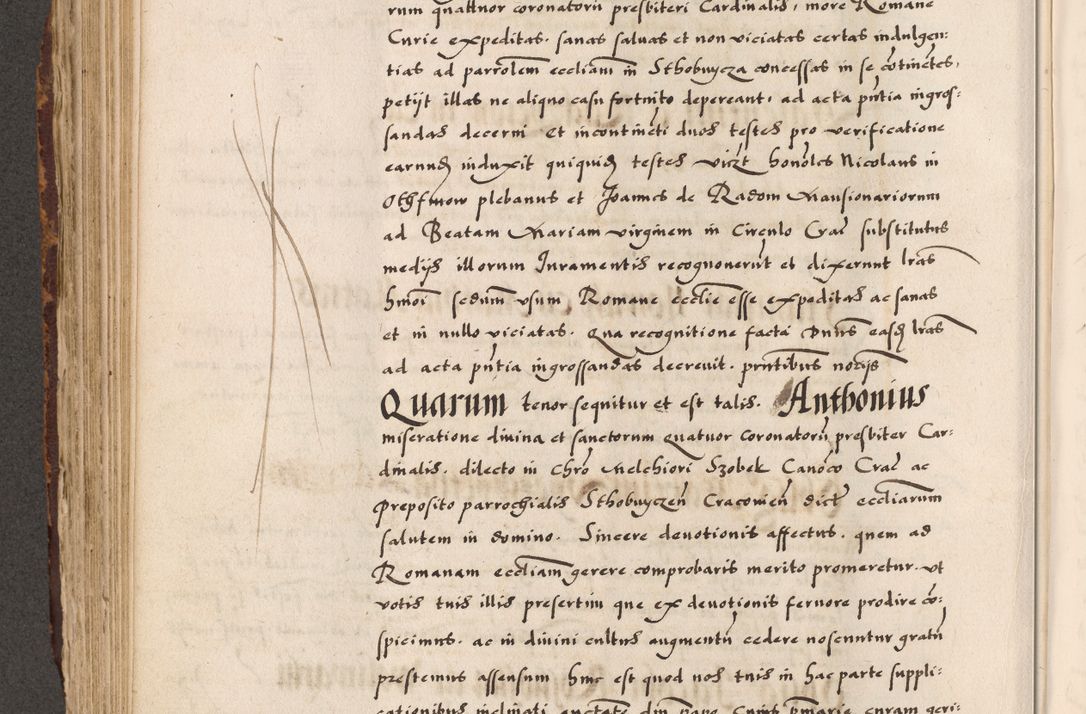 rum quattuor coronatorū presbiteri Cardinalis, more Romane
Curie expeditas. sanas saluas et non viciatas certas indulgen:
tias ad parrolem eccliam in Sthobnycza concessas in se cōtinētes,
petijt illas ne aliquo casu fortuito depereant, ad acta pńtia ingros:
sandas decerni et incontinēti duos testes pro verificatione
earund induxit quiquid testes vicz̄t honoles Nicolaus in
plebanus et Joannes de Radom Mansionariorum
ad Beatam Mariam virginem in Circulo Crac̄ substitutus
medijs illorum Iuramentis recognouerūt et dixerunt lras
hmōi sedum vsum Romane ecclie esse expeditas ac sanas
et in nullo viciatas. Qua recognitione facta Dnus easd lras
ad acta pńtia ingrossandas decreuit. pntibus nocijs
Quarum tenor sequitur et est talis. Anthonius
miseratione diuina et sanctorum quatuor coronatorū presbiter Car:
dinalis. dilecto in chrō Melchiori Szobek Canōco Crac̄ ac
preposito parrochialis Sthobnyczeń Cracouień dict ecclīarum
salutem in domino. Sincere deuotionis affectus. quem ad
Romanam eccliam gerere comprobaris merito promeretur. vt
votis tuis illis presertim que ex deuotionis feruore prodire cō:
spicimus. ac in diuini cultus augmentū cedere noscuntur gratū
prestemus assensum hinc est quod nos tuis in hac parte suppli:
cationibus inclinati curam geri: